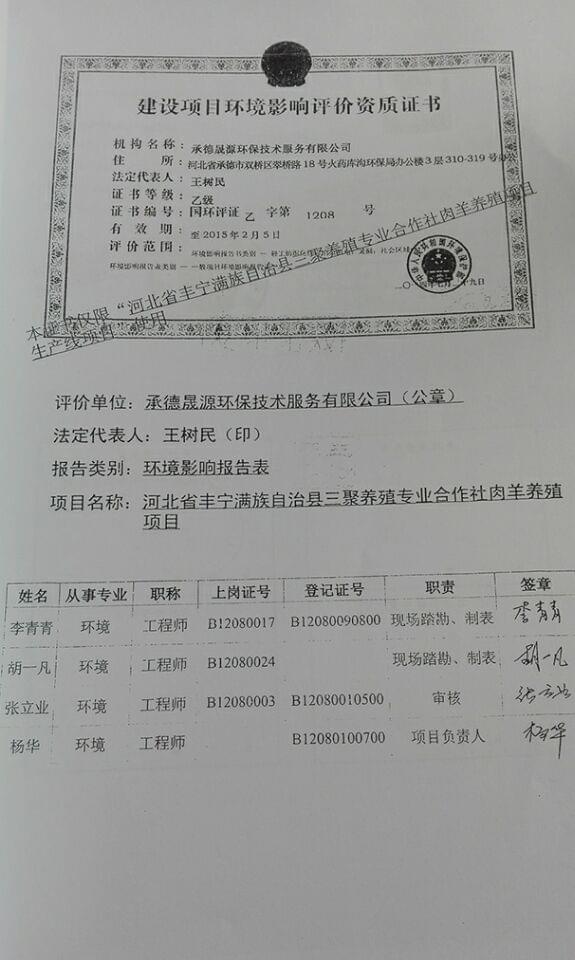 建设项目环境影响评价资质证书
机构名称：承德晟源环保技术服务有限公司
住 所：河北省承德市双桥区翠桥路18号火药库沟环保局办公楼3层310-319号办公
法定代表人：王树民
证书等级：乙级
证书编号：国环评证 乙 字第 1208 号
有效期：至2015年2月5日
评价范围：环境影响报告书类别 — 社会区域
环境影响报告表类别 — 一般项目环境影响报告表
本证书仅限“河北省丰宁满族自治县三聚养殖专业合作社肉羊养殖项目
生产线项目”使用
评价单位：承德晟源环保技术服务有限公司（公章）
法定代表人：王树民（印）
报告类别：环境影响报告表
项目名称：河北省丰宁满族自治县三聚养殖专业合作社肉羊养殖
项目
姓名 从事专业 职称 上岗证号 登记证号 职责 签章
李青青 环境 工程师 B12080017 B12080090800 现场踏勘、制表 李青青
胡一凡 环境 工程师 B12080024 现场踏勘、制表 胡一凡
张立业 环境 工程师 B12080003 B12080010500 审核
杨华 环境 工程师 B12080100700 项目负责人 杨华